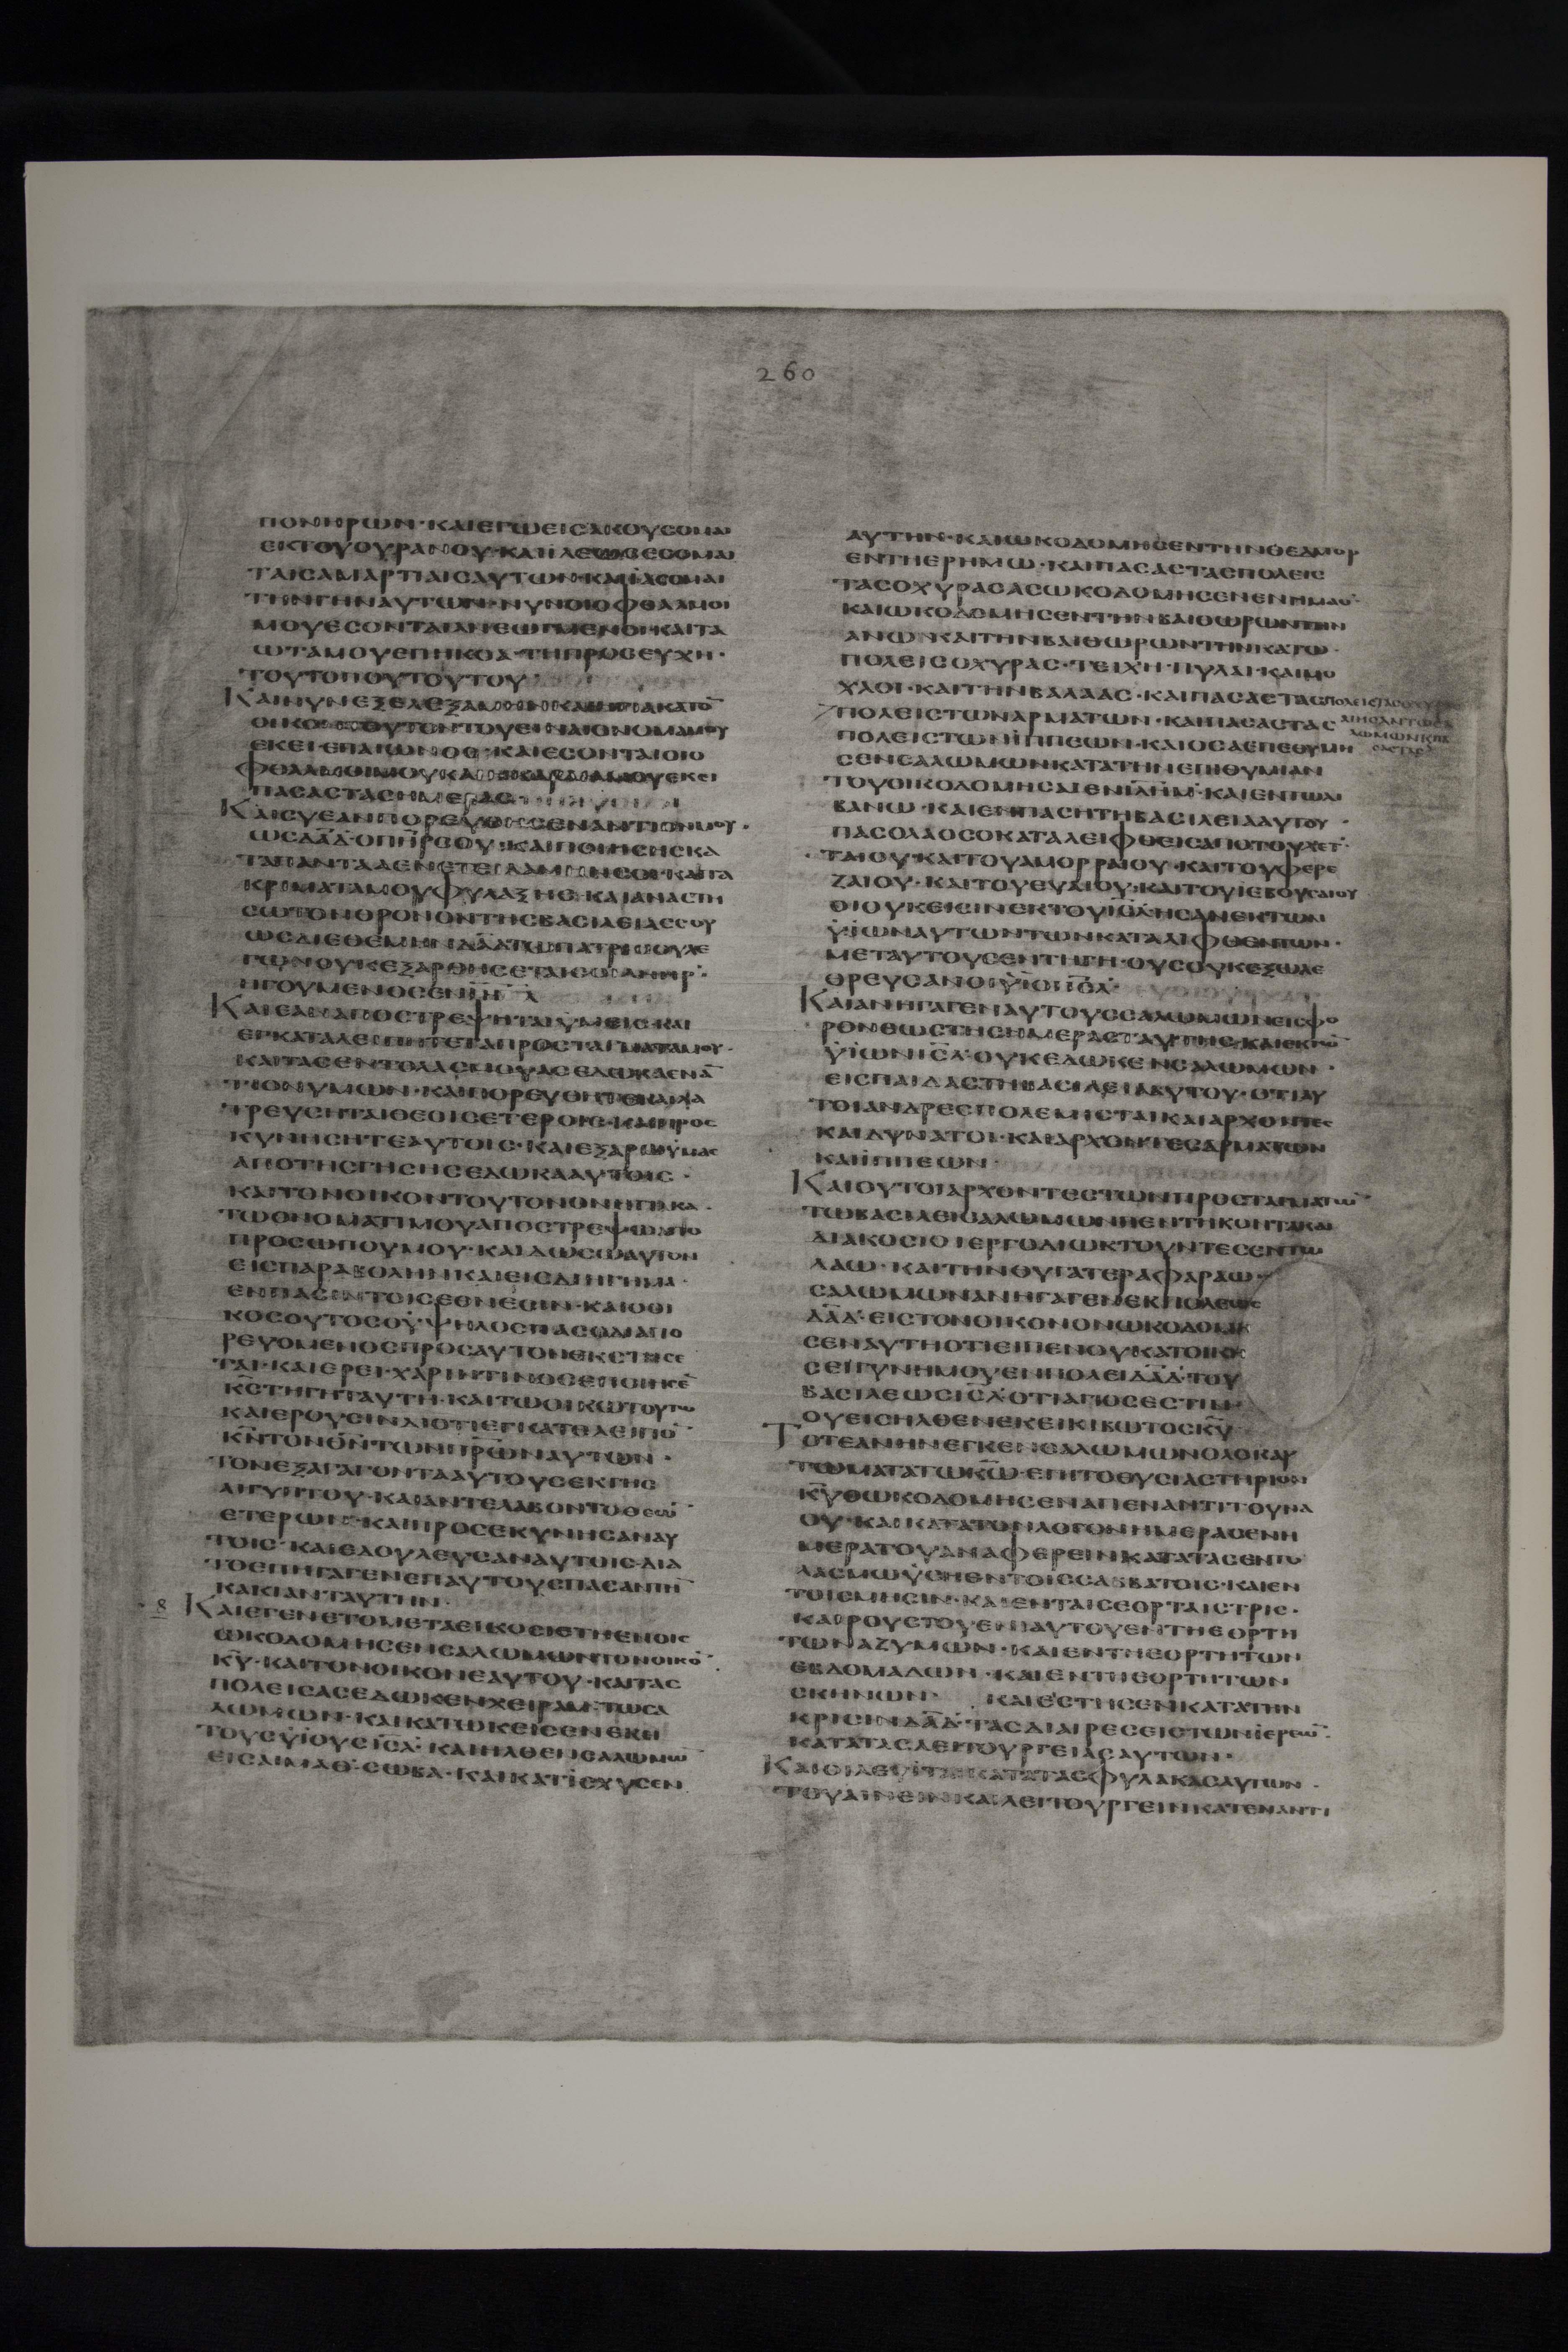 260
ΠΟΝΗΡΩΝ·ΚΑΙΕΓΩΕΙΣΑΚΟΥΣΟΜΑΙ
ΕΚΤΟΥΟΥΡΑΝΟΥ·ΚΑΙΪΛΕΩΣΕΣΟΜΑΙ
ΤΑΙΣΑΜΑΡΤΙΑΙΣΑΥΤΩΝ·ΚΑΙΪΑΣΟΜΑΙ
ΤΗΝΓΗΝΑΥΤΩΝ·ΝΥΝΟΙΟΦΘΑΛΜΟΙ
ΜΟΥΕΣΟΝΤΑΙΑΝΕΩΓΜΕΝΟΙ·ΚΑΙΤΑ
ΩΤΑΜΟΥΕΠΗΚΟΑ·ΤΗΠΡΟΣΕΥΧΗ·
ΤΟΥΤΟΠΟΥΤΟΥΤΟΥ·
ΚΑΙΝΥΝΕΞΕΛΕΞΑΜΗΝΚΑΙΗΓΙΑΚΑΤΟ̅
ΟΙΚΟΝΤΟΥΤΟΝΤΟΥΕΙΝΑΙΟΝΟΜΑΜΟΥ
ΕΚΕΙ·ΕΠΑΙΩΝΟΣ·ΚΑΙΕΣΟΝΤΑΙΟΙΟ
ΦΘΑΛΜΟΙΜΟΥΚΑΙΗΚΑΡΔΙΑΜΟΥΕΚΕΙ
ΠΑΣΑΣΤΑΣΗΜΕΡΑΣ
ΚΑΙΣΥΕΑΝΠΟΡΕΥΘΗΣΕΝΑΝΤΙΟΝΜΟΥ·
ΩΣΔΑ̅Δ·ΟΠΗ̅ΡΣΟΥ·ΚΑΙΠΟΙΗΣΗΣΚΑ
ΤΑΠΑΝΤΑΑΕΝΕΤΕΙΛΑΜΗΝΣΟΙ·ΚΑΙΤΑ
ΚΡΙΜΑΤΑΜΟΥΦΥΛΑΞΗΣ·ΚΑΙΑΝΑΣΤΗ
ΣΩΤΟΝΘΡΟΝΟΝΤΗΣΒΑΣΙΛΕΙΑΣΣΟΥ
ΩΣΔΙΕΘΕΜΗΝΔΑ̅ΔΤΩΠΑΤΡΙΣΟΥΛΕ
ΓΩΝΟΥΚΕΞΑΡΘΗΣΕΤΑΙΣΟΙΑΝΗΡ·
ΗΓΟΥΜΕΝΟΣΕΝΙ̅Η̅Λ
ΚΑΙΕΑΝΑΠΟΣΤΡΕΨΗΤΑΙΫΜΕΙΣ·ΚΑΙ
ΕΓΚΑΤΑΛΕΙΠΗΤΕΤΑΠΡΟΣΤΑΓΜΑΤΑΜΟΥ·
ΚΑΙΤΑΣΕΝΤΟΛΑΣΜΟΥΑΣΕΔΩΚΑΕΝΑ̅
ΤΙΟΝΥΜΩΝ·ΚΑΙΠΟΡΕΥΘΗΤΕΚΑΙΛΑ
ΤΡΕΥΣΗΤΑΙΘΕΟΙΣΕΤΕΡΟΙΣ·ΚΑΙΠΡΟΣ
ΚΥΝΗΣΗΤΕΑΥΤΟΙΣ·ΚΑΙΕΞΑΡΩΫΜΑΣ
ΑΠΟΤΗΣΓΗΣΗΣΕΔΩΚΑΑΥΤΟΙΣ·
ΚΑΙΤΟΝΟΙΚΟΝΤΟΥΤΟΝΟΝΗΓΙΑΚΑ·
ΤΩΟΝΟΜΑΤΙΜΟΥΑΠΟΣΤΡΕΨΩΑΠΟ
ΠΡΟΣΩΠΟΥΜΟΥ·ΚΑΙΔΩΣΩΑΥΤΟΝ
ΕΙΣΠΑΡΑΒΟΛΗΝΚΑΙΕΙΣΔΙΗΓΗΜΑ·
ΕΝΠΑΣΙΝΤΟΙΣΕΘΝΕΣΙΝ·ΚΑΙΟΟΙ
ΚΟΣΟΥΤΟΣΟΫ·ΨΗΛΟΣΠΑΣΟΔΙΑΠΟ
ΡΕΥΟΜΕΝΟΣΠΡΟΣΑΥΤΟΝΕΚΣΤΗΣΕ
ΤΑΙ·ΚΑΙΕΡΕΙ·ΧΑΡΙΝΤΙΝΟΣΕΠΟΙΗΚΕ̅
Κ̅ΣΤΗΓΗΤΑΥΤΗ·ΚΑΙΤΩΟΙΚΩΤΟΥΤΩ
ΚΑΙΕΡΟΥΣΙΝΔΙΟΤΙΕΓΚΑΤΕΛΕΙΠΟ̅
Κ̅ΝΤΟΝΘ̅ΝΤΩΝΠΡ̅ΩΝΑΥΤΩΝ·
ΤΟΝΕΞΑΓΑΓΟΝΤΑΑΥΤΟΥΣΕΚΓΗΣ
ΑΙΓΥΠΤΟΥ·ΚΑΙΑΝΤΕΛΑΒΟΝΤΟΘΕΩ̅
ΕΤΕΡΩΝ·ΚΑΙΠΡΟΣΕΚΥΝΗΣΑΝΑΥ
ΤΟΙΣ·ΚΑΙΕΔΟΥΛΕΥΣΑΝΑΥΤΟΙΣ·ΔΙΑ
ΤΟΕΠΗΓΑΓΕΝΕΠΑΥΤΟΥΣΠΑΣΑΝΤΗ̅
ΚΑΚΙΑΝΤΑΥΤΗΝ·
8 ΚΑΙΕΓΕΝΕΤΟΜΕΤΑΕΙΚΟΣΙΕΤΗΕΝΟΙΣ
ΩΚΟΔΟΜΗΣΕΝΣΑΛΩΜΩΝΤΟΝΟΙΚΟ̅
Κ̅Υ·ΚΑΙΤΟΝΟΙΚΟΝΕΑΥΤΟΥ·ΚΑΙΤΑΣ
ΠΟΛΕΙΣΑΣΕΔΩΚΕΝΧΕΙΡΑΜ·ΤΩΣΑ
ΛΩΜΩΝ·ΚΑΙΚΑΤΩΚΕΙΣΕΝΕΚΕΙ
ΤΟΥΣΫΙΟΥΣΙ̅ΣΛ·ΚΑΙΗΛΘΕΝΣΑΛΩΜΩ̅
ΕΙΣΑΙΜΑΘ·ΣΩΒΑ·ΚΑΙΚΑΤΪΣΧΥΣΕΝ
ΑΥΤΗΝ·ΚΑΙΩΚΟΔΟΜΗΣΕΝΤΗΝΘΕΔΜΟΡ
ΕΝΤΗΕΡΗΜΩ·ΚΑΙΠΑΣΑΣΤΑΣΠΟΛΕΙΣ
ΤΑΣΟΧΥΡΑΣΑΣΩΚΟΔΟΜΗΣΕΝΕΝΗΜΑΘ·
ΚΑΙΩΚΟΔΟΜΗΣΕΝΤΗΝΒΑΙΘΩΡΩΝΤΗΝ
ΑΝΩ·ΚΑΙΤΗΝΒΑΙΘΩΡΩΝΤΗΝΚΑΤΩ·
ΠΟΛΕΙΣΟΧΥΡΑΣ·ΤΕΙΧΗ·ΠΥΛΑΙ·ΚΑΙΜΟ
ΧΛΟΙ·ΚΑΙΤΗΝΒΑΛΑΑΣ·ΚΑΙΠΑΣΑΣΤΑΣ
ΠΟΛΕΙΣΤΩΝΑΡΜΑΤΩΝ·ΚΑΙΠΑΣΑΣΤΑΣ
ΠΟΛΕΙΣΤΩΝΪΠΠΕΩΝ·ΚΑΙΟΣΑΕΠΕΘΥΜΗ
ΣΕΝΣΑΛΩΜΩΝΚΑΤΑΤΗΝΕΠΙΘΥΜΙΑΝ
ΤΟΥΟΙΚΟΔΟΜΗΣΑΙΕΝΙ̅Λ̅Η̅Μ·ΚΑΙΕΝΤΩΛΙ
ΒΑΝΩ·ΚΑΙΕΝΠΑΣΗΤΗΒΑΣΙΛΕΙΑΑΥΤΟΥ·
ΠΑΣΟΛΑΟΣΟΚΑΤΑΛΕΙΦΘΕΙΣΑΠΟΤΟΥΧΕΤ·
ΤΑΙΟΥ·ΚΑΙΤΟΥΑΜΟΡΡΑΙΟΥ·ΚΑΙΤΟΥΦΕΡΕ
ΖΑΙΟΥ·ΚΑΙΤΟΥΕΥΑΙΟΥ·ΚΑΙΤΟΥΪΕΒΟΥΣΑΙΟΥ
ΟΙΟΥΚΕΙΣΙΝΕΚΤΟΥΙ̅Σ̅ΛΗΣΑΝΕΚΤΩΝ
ΫΪΩΝΑΥΤΩΝΤΩΝΚΑΤΑΛΙΦΘΕΝΤΩΝ·
ΜΕΤΑΥΤΟΥΣΕΝΤΗΓΗ·ΟΥΣΟΥΚΕΞΩΛΕ
ΘΡΕΥΣΑΝΟΙΫΙΟΙΙ̅Σ̅Λ·
ΚΑΙΑΝΗΓΑΓΕΝΑΥΤΟΥΣΣΑΛΩΜΩΝΕΙΣΦΟ
ΡΟΝΕΩΣΤΗΣΗΜΕΡΑΣΤΑΥΤΗΣ·ΚΑΙΕΚΤΩ̅
ΫΪΩΝΙ̅ΣΛ·ΟΥΚΕΔΩΚΕΝΣΑΛΩΜΩΝ·
ΕΙΣΠΑΙΔΑΣΤΗΒΑΣΙΛΕΙΑΑΥΤΟΥ·ΟΤΙΑΥ
ΤΟΙΑΝΔΡΕΣΠΟΛΕΜΗΣΤΑΙΚΑΙΑΡΧΟΝΤΕΣ
ΚΑΙΔΥΝΑΤΟΙ·ΚΑΙΑΡΧΟΝΤΕΣΑΡΜΑΤΩΝ
ΚΑΙΪΠΠΕΩΝ·
ΚΑΙΟΥΤΟΙΑΡΧΟΝΤΕΣΤΩΝΠΡΟΣΤΑΓΜΑΤΩ̅
ΤΩΒΑΣΙΛΕΙΣΑΛΩΜΩΝΠΕΝΤΗΚΟΝΤΑΚΑΙ
ΔΙΑΚΟΣΙΟΙΕΡΓΟΔΙΩΚΤΟΥΝΤΕΣΕΝΤΩ
ΛΑΩ·ΚΑΙΤΗΝΘΥΓΑΤΕΡΑΦΑΡΑΩ·
ΣΑΛΩΜΩΝΑΝΗΓΑΓΕΝΕΚΠΟΛΕΩΣ
ΔΑ̅Δ·ΕΙΣΤΟΝΟΙΚΟΝΟΝΩΚΟΔΟΜΗ
ΣΕΝΑΥΤΗΟΤΙΕΙΠΕΝΟΥΚΑΤΟΙΚΗ
ΣΕΙΓΥΝΗΜΟΥΕΝΠΟΛΕΙΔΑ̅Δ·ΤΟΥ
ΒΑΣΙΛΕΩΣΙ̅ΣΛ·ΟΤΙΑΓΙΟΣΕΣΤΙΝ·
ΟΥΕΙΣΗΛΘΕΝΕΚΕΙΚΙΒΩΤΟΣΚ̅Υ·
ΤΟΤΕΑΝΗΝΕΓΚΕΝΣΑΛΩΜΩΝΟΛΟΚΑΥ
ΤΩΜΑΤΑΤΩΚ̅Ω·ΕΠΙΤΟΘΥΣΙΑΣΤΗΡΙΟΝ
Κ̅ΥΟΩΚΟΔΟΜΗΣΕΝΑΠΕΝΑΝΤΙΤΟΥΝΑ
ΟΥ·ΚΑΙΚΑΤΑΤΟΝΛΟΓΟΝΗΜΕΡΑΣΕΝΗ
ΜΕΡΑΤΟΥΑΝΑΦΕΡΕΙΝΚΑΤΑΤΑΣΕΝΤΟ
ΛΑΣΜΩΫΣΗΕΝΤΟΙΣΣΑΒΒΑΤΟΙΣ·ΚΑΙΕΝ
ΤΟΙΣΜΗΣΙΝ·ΚΑΙΕΝΤΑΙΣΕΟΡΤΑΙΣΤΡΙΣ·
ΚΑΙΡΟΥΣΤΟΥΕΝΙΑΥΤΟΥΕΝΤΗΕΟΡΤΗ
ΤΩΝΑΖΥΜΩΝ·ΚΑΙΕΝΤΗΕΟΡΤΗΤΩΝ
ΕΒΔΟΜΑΔΩΝ·ΚΑΙΕΝΤΗΕΟΡΤΗΤΩΝ
ΣΚΗΝΩΝ· ΚΑΙΕΣΤΗΣΕΝΚΑΤΑΤΗΝ
ΚΡΙΣΙΝΔΑ̅Δ·ΤΑΣΔΙΑΙΡΕΣΕΙΣΤΩΝΪΕΡΕΩ̅·
ΚΑΤΑΤΑΣΛΕΙΤΟΥΡΓΕΙΑΣΑΥΤΩΝ·
ΚΑΙΟΙΛΕΥΙΤΑΙΚΑΤΑΤΑΣΦΥΛΑΚΑΣΑΥΤΩΝ·
ΤΟΥΑΙΝΕΙΝΚΑΙΛΕΙΤΟΥΡΓΕΙΝΚΑΤΕΝΑΝΤΙ